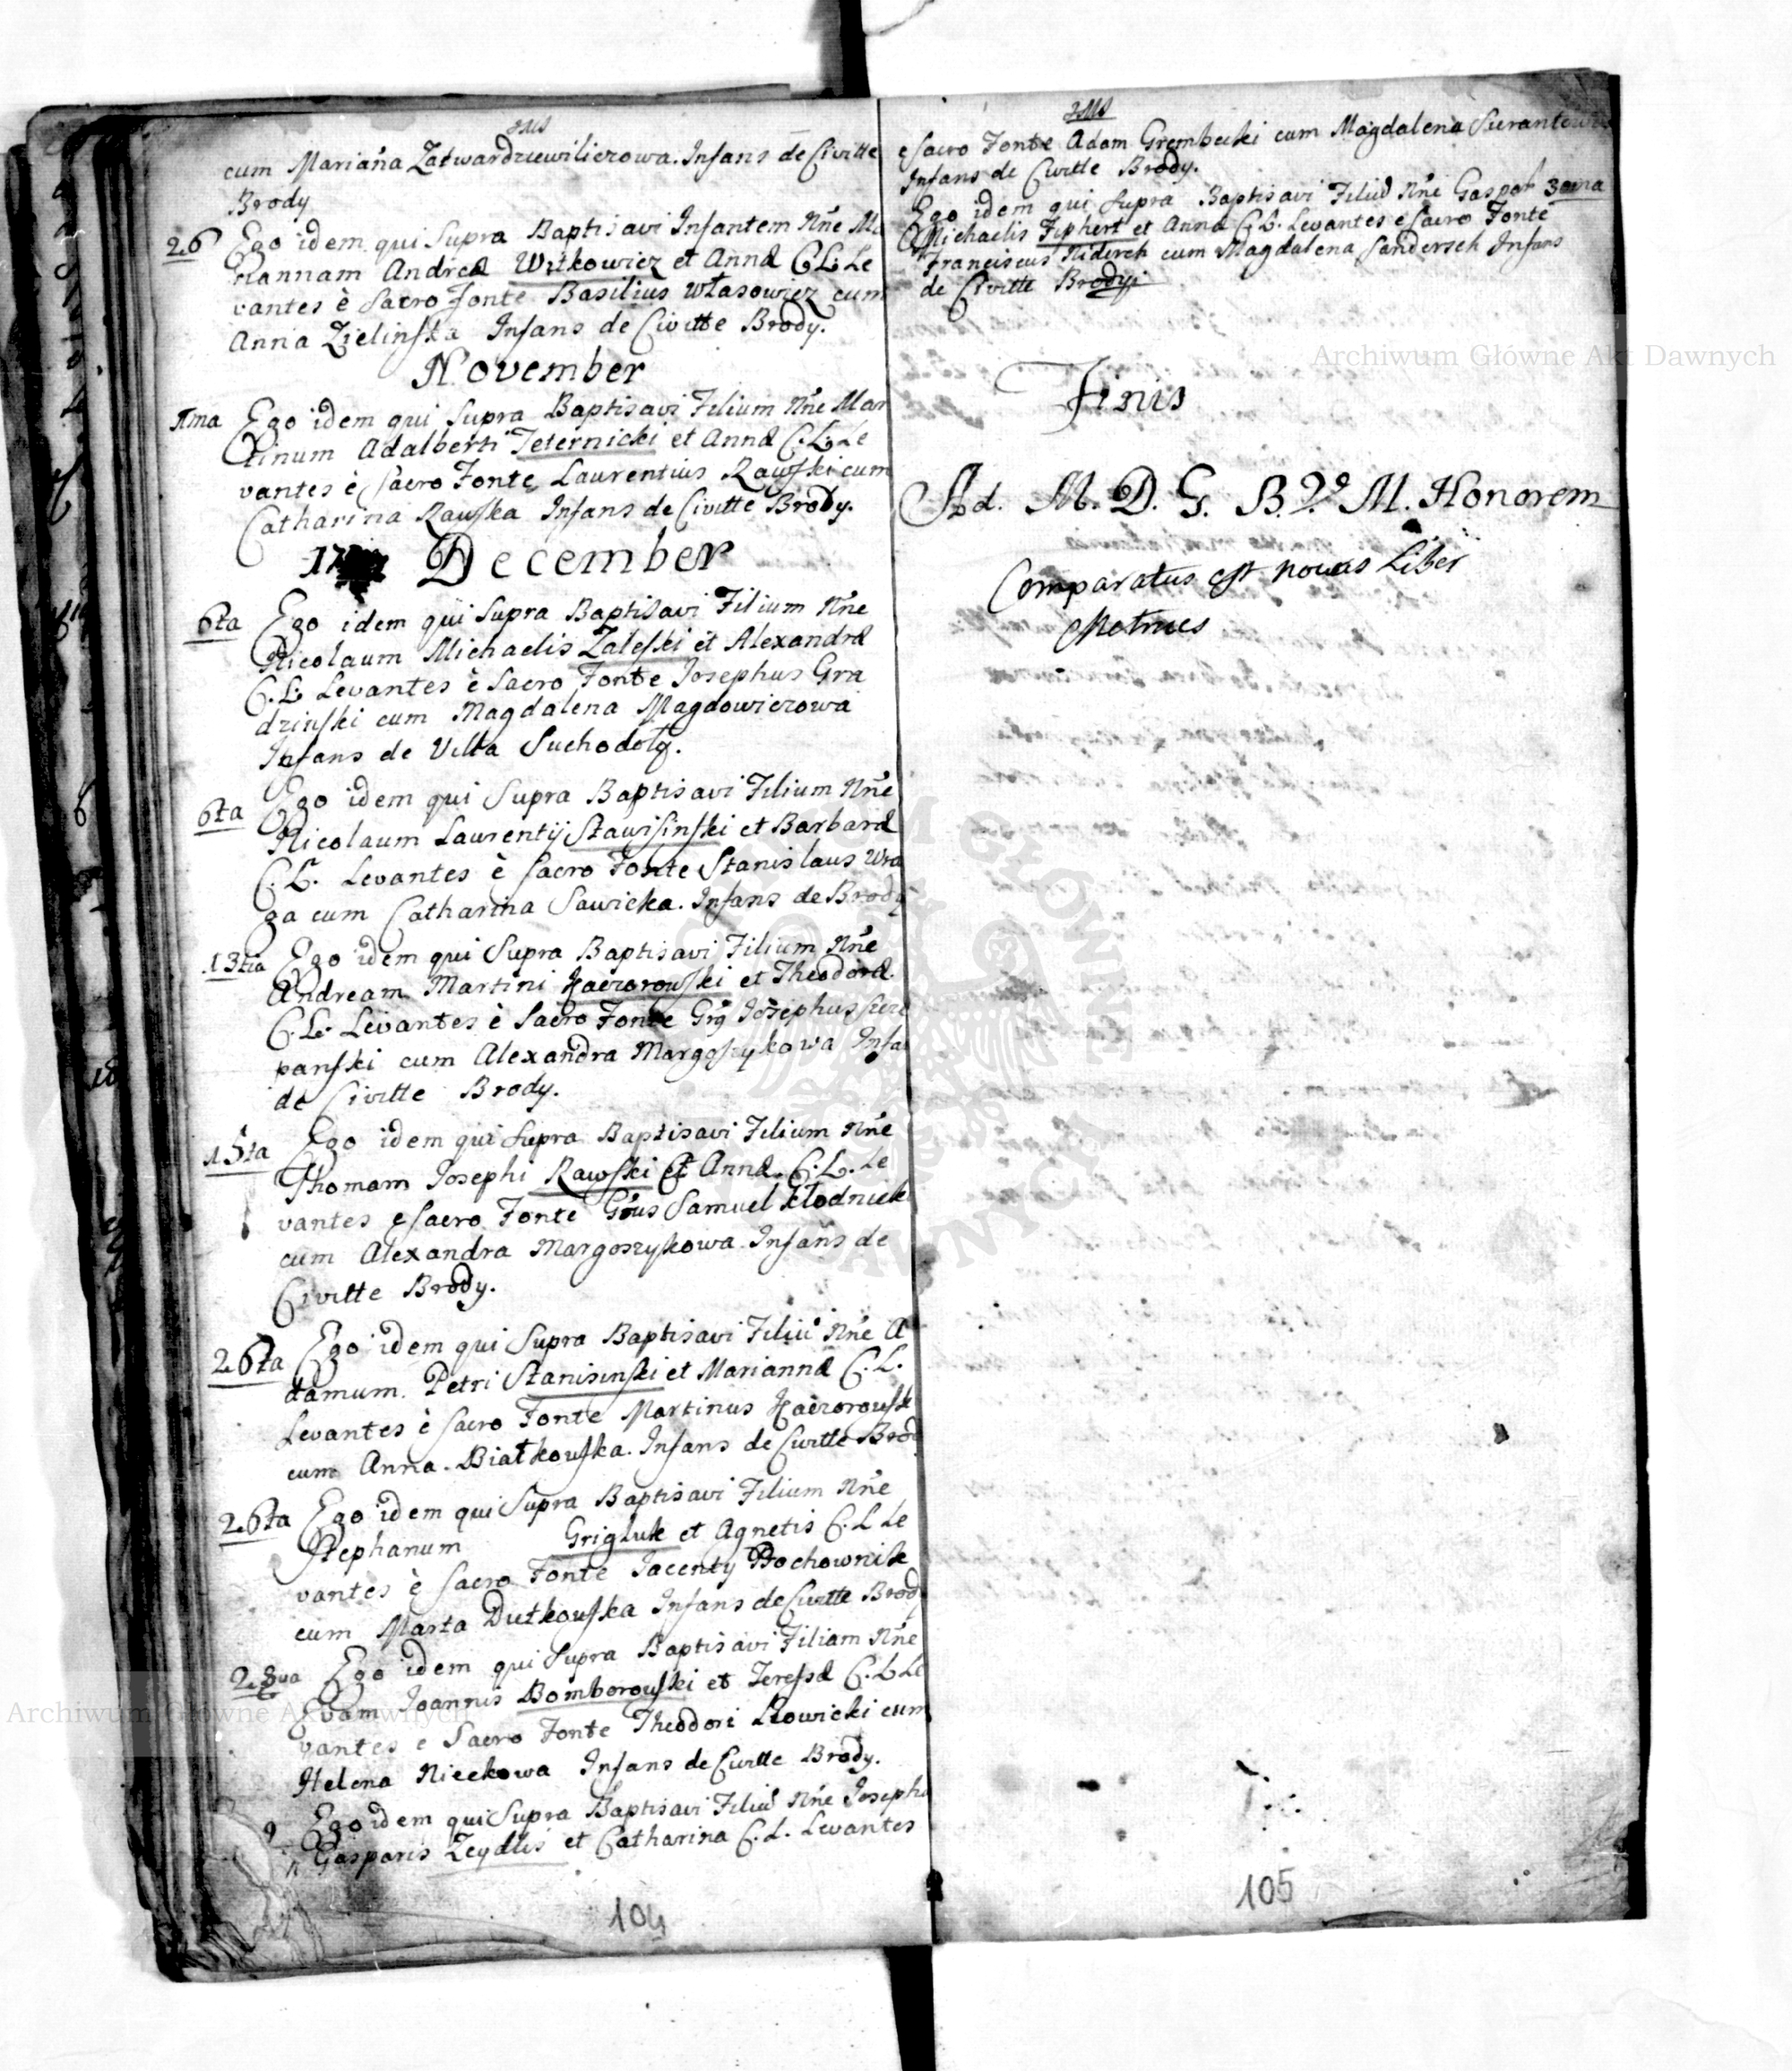 JMS
cum Mariana Zatwardziewiliczowa. Infans de Civitte
Brody
26 Ego idem qui Supra Baptisavi Infantem Nñe Ma
riannam Andreæ Witkowicz et Annæ C.L. Le
vantes è Sacro Fonte Basilius Własowicz cum
Anna Zielinska Infans de Civitte Brody.
November
11ma Ego idem qui Supra Baptisavi Filium Nñe Mar
tinum Adalberti Teternicki et Annæ C.L. Le
vantes è Sacro Fonte Laurentius Rawski cum
Catharina Rawska Infans de Civitte Brody.
December
6ta Ego idem qui Supra Baptisavi Filium Nñe
Nicolaum Michaelis Zaleski et Alexandræ
C.L. Levantes è Sacro Fonte Josephus Gra
dzinski cum Magdalena Magdowiczowa
Infans de Villa Suchodoły.
6ta Ego idem qui Supra Baptisavi Filium Nñe
Nicolaum Laurentij Stawisinski et Barbaræ
C.L. Levantes è Sacro Fonte Stanislaus Wra
ga cum Catharina Sawicka. Infans de Brody
13tia Ego idem qui Supra Baptisavi Filium Nñe
Andream Martini Kaczorowski et Theodoræ.
C.L. Levantes è Sacro Fonte Josephus Szcze
panski cum Alexandra Margoszykowa Infa
de Civitte Brody.
15ta Ego idem qui Supra Baptisavi Filium Nñe
Thomam Josephi Rawski Et Annæ. C.L. Le
vantes e Sacro Fonte Gñus Samuel Kłodnick
cum Alexandra Margoszykowa. Infans de
Civitte Brody.
26ta Ego idem qui Supra Baptisavi Filiũ Nñe A
damum. Petri Stanisinski et Mariannæ C.L.
Levantes è Sacro Fonte Martinus Kaczorowsk
cum Anna. Białkowska. Infans de Civitte Brod
26ta Ego idem qui Supra Baptisavi Filium Nñe
Stephanum Grigluk et Agnetis C.L Le
vantes è Sacro Fonte Jacenty Prochownik
cum Marta Dutkowska Infans de Civitte Brody
28va Ego idem qui Supra Baptisavi Filiam Nñe
Evam Joannis Bomborowski et Teressæ C.L Le
vantes e Sacro Fonte Theodori Nowicki cum
Helena Nieckowa Infans de Civitte Brody.
Ego idem qui Supra Baptisavi Filiũ Nñe Josephu
Gasparis Zeydlis et Catharina C.L. Levantes
104
JMS
e Sacro Fonte Adam Grembecki cum Magdalena
Infans de Civitte Brody.
Ego idem qui Supra Baptisavi Filiũ Nñe Gaspar 30ma
Michaelis Fiphert et Anna C.L. Levantes e Sacro Fonte
Franciscus Niderch cum Magdalena Sandersch Infans
de Civitte Brody
Finis
Ad. M. D. G. B. V. M. Honorem
Comparatus est novus Liber
Metrices
105
Archiwum Główne Akt Dawnych
Archiwum Główne Akt Dawnych
ARCHIWUM GŁÓWNE AKT DAWNYCH